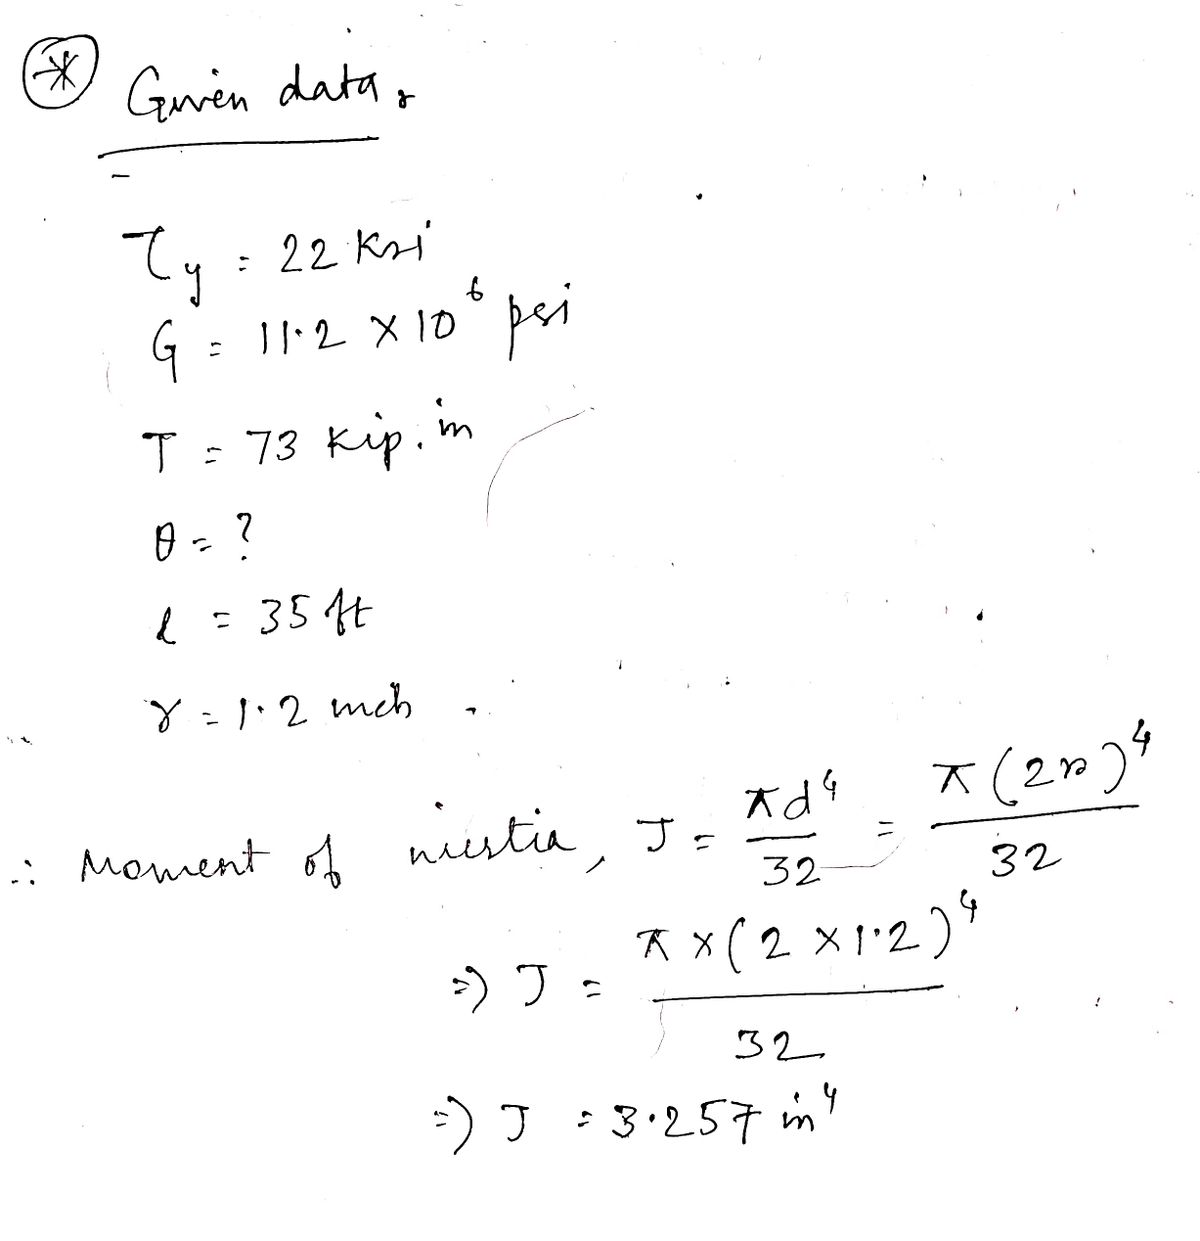 * Given data,
τy = 22 Ksi
G = 11.2 × 10⁶ psi
T = 73 Kip.in
θ = ?
l = 35 ft
r = 1.2 inch.
∴ Moment of inertia, J = πd⁴/32 = π(2r)⁴/32
⇒ J = π×(2×1.2)⁴/32
⇒ J = 3.257 in⁴